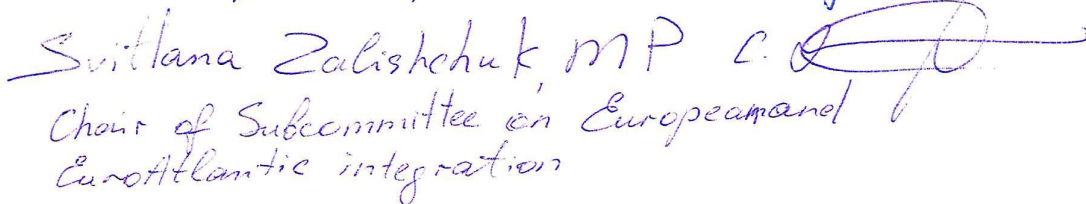 Svitlana Zalishchuk, MP C.
Chair of Subcommittee on Europeanand
EuroAtlantic integration